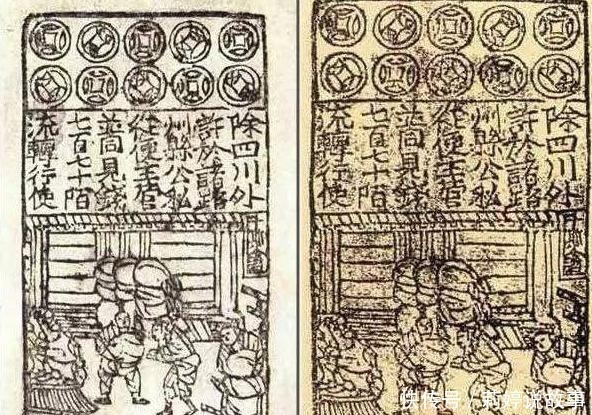 除四川外
許於諸路
州縣公私
從便主管
並同見錢
七百七十陌
流轉行使
除四川外
許於諸路
州縣公私
從便主管
並同見錢
七百七十陌
流轉行使
快传号 / 婷说故事